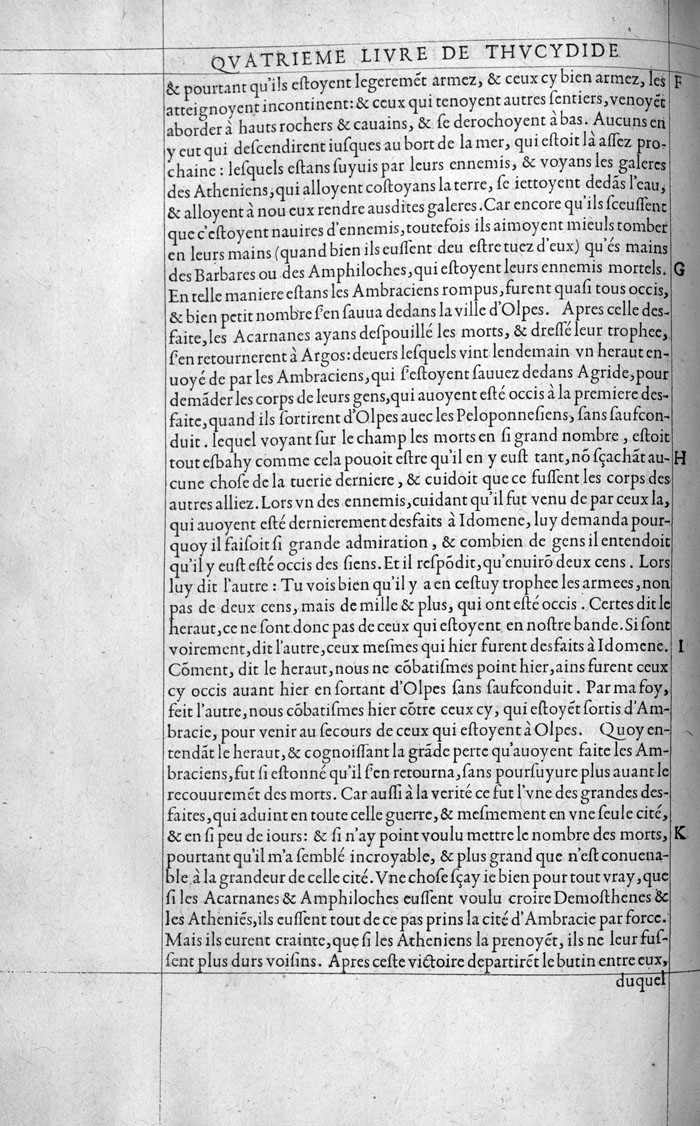 QVATRIEME LIVRE DE THVCYDIDE
& pourtant qu'ils eſtoyent legeremẽt armez, & ceux cy bien armez, les F
atteignoyent incontinent: & ceux qui tenoyent autres ſentiers, venoyẽt
aborder à hauts rochers & cauains, & ſe derochoyent à bas. Aucuns en
y eut qui deſcendirent iuſques au bort de la mer, qui eſtoit là aſſez pro-
chaine : leſquels eſtans ſuyuis par leurs ennemis, & voyans les galeres
des Atheniens, qui alloyent coſtoyans la terre, ſe iettoyent dedãs l'eau,
& alloyent à nou eux rendre auſdites galeres. Car encore qu'ils ſceuſſent
que c'eſtoyent nauires d'ennemis, toutefois ils aimoyent mieuls tomber
en leurs mains (quand bien ils euſſent deu eſtre tuez d'eux) qu'és mains
des Barbares ou des Amphiloches, qui eſtoyent leurs ennemis mortels. G
En telle maniere eſtans les Ambraciens rompus, furent quaſi tous occis,
& bien petit nombre ſ'en ſauua dedans la ville d'Olpes. Apres celle deſ-
faite, les Acarnanes ayans deſpouillé les morts, & dreſſé leur trophee,
ſ'en retournerent à Argos: deuers leſquels vint lendemain vn heraut en-
uoyé de par les Ambraciens, qui ſ'eſtoyent ſauuez dedans Agride, pour
demãder les corps de leurs gens, qui auoyent eſté occis à la premiere deſ-
faite, quand ils ſortirent d'Olpes auec les Peloponneſiens, ſans ſaufcon-
duit. lequel voyant ſur le champ les morts en ſi grand nombre, eſtoit
tout esbahy comme cela pouoit eſtre qu'il en y euſt tant, nõ ſçachãt au- H
cune choſe de la tuerie derniere, & cuidoit que ce fuſſent les corps des
autres alliez. Lors vn des ennemis, cuidant qu'il fut venu de par ceux la,
qui auoyent eſté dernierement desfaits à Idomene, luy demanda pour-
quoy il faiſoit ſi grande admiration, & combien de gens il entendoit
qu'il y euſt eſté occis des ſiens. Et il reſpõdit, qu'enuirõ deux cens. Lors
luy dit l'autre : Tu vois bien qu'il y a en ceſtuy trophee les armees, non
pas de deux cens, mais de mille & plus, qui ont eſté occis. Certes dit le
heraut, ce ne ſont donc pas de ceux qui eſtoyent en noſtre bande. Si ſont
voirement, dit l'autre, ceux meſmes qui hier furent desfaits à Idomene. I
Cõment, dit le heraut, nous ne cõbatiſmes point hier, ains furent ceux
cy occis auant hier en ſortant d'Olpes ſans ſaufconduit. Par ma foy,
feit l'autre, nous cõbatiſmes hier cõtre ceux cy, qui eſtoyẽt ſortis d'Am-
bracie, pour venir au ſecours de ceux qui eſtoyent à Olpes. Quoy en-
tendãt le heraut, & cognoiſſant la grãde perte qu'auoyent faite les Am-
braciens, fut ſi eſtonné qu'il ſ'en retourna, ſans pourſuyure plus auant le
recouuremẽt des morts. Car auſſi à la verité ce fut l'vne des grandes deſ-
faites, qui aduint en toute celle guerre, & meſmement en vne ſeule cité,
& en ſi peu de iours: & ſi n'ay point voulu mettre le nombre des morts, K
pourtant qu'il m'a ſemblé incroyable, & plus grand que n'eſt conuena-
ble à la grandeur de celle cité. Vne choſe ſçay ie bien pour tout vray, que
ſi les Acarnanes & Amphiloches euſſent voulu croire Demoſthenes &
les Atheniẽs, ils euſſent tout de ce pas prins la cité d'Ambracie par force.
Mais ils eurent crainte, que ſi les Atheniens la prenoyẽt, ils ne leur fuſ-
ſent plus durs voiſins. Apres ceſte victoire departirẽt le butin entre eux,
duquel